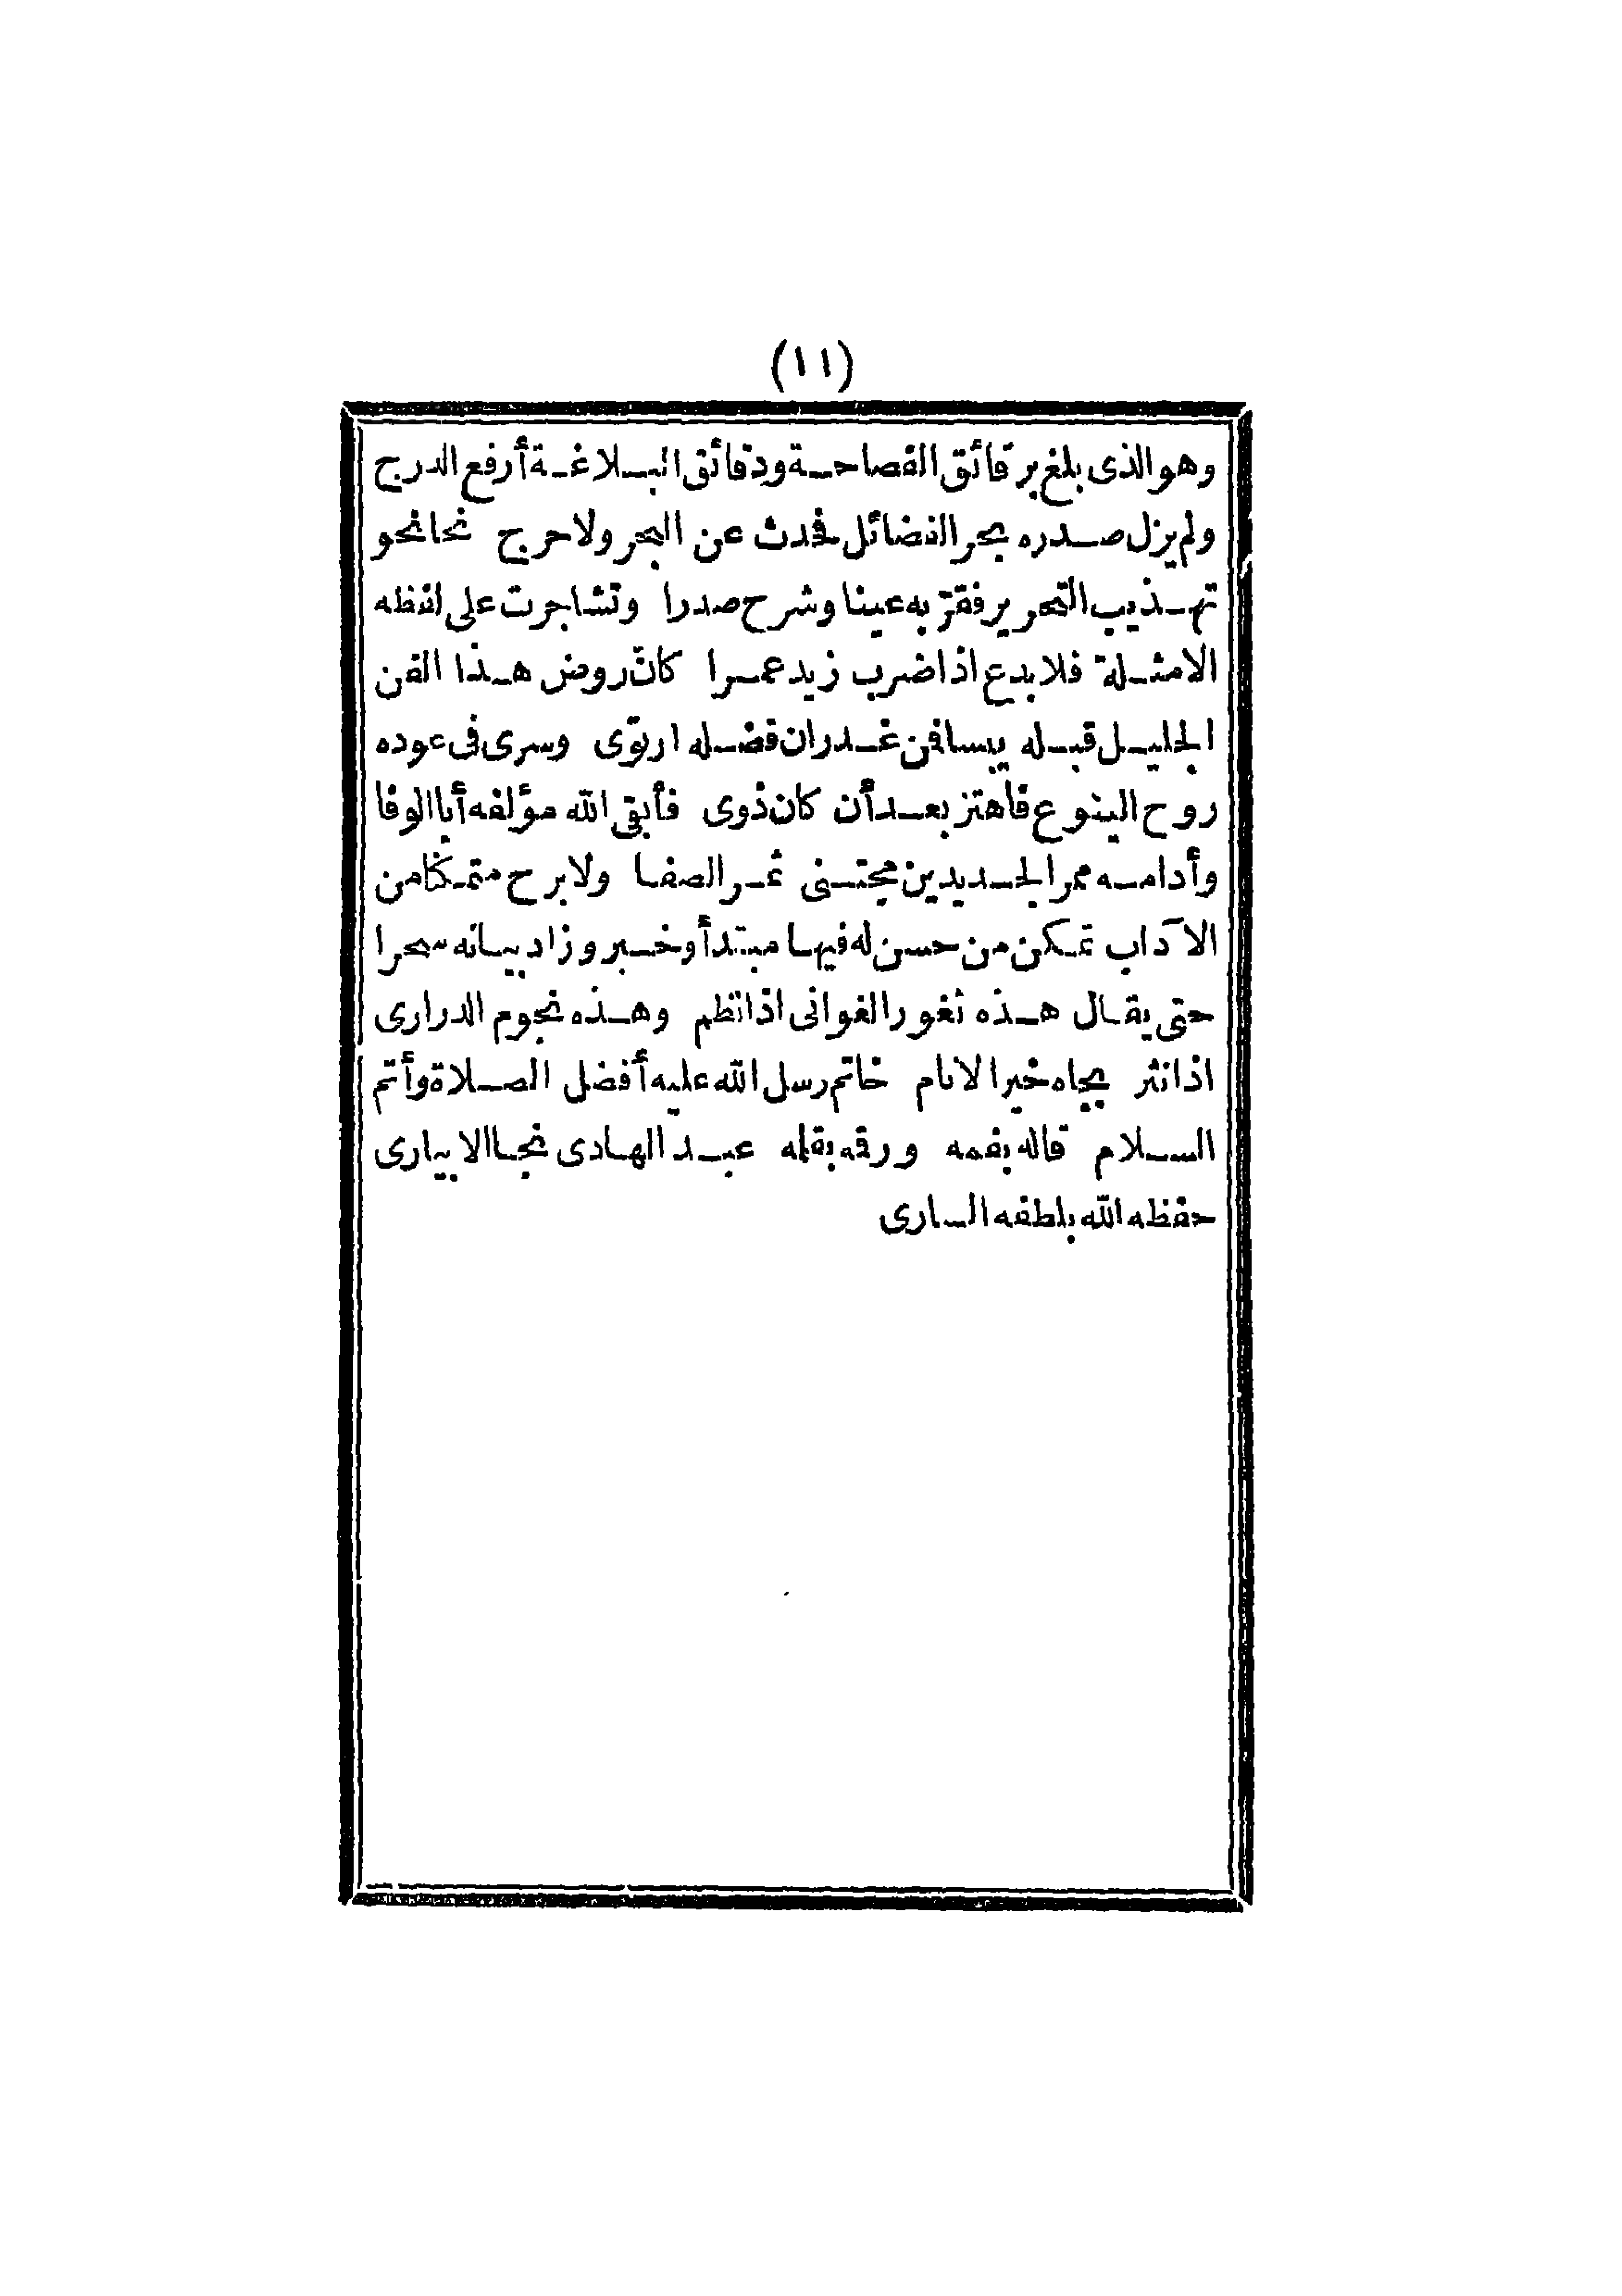 (١١)
وهو الذى بلغ برقائق الفصاحة ودقائق البلاغة أرفع الدرج
ولم يزل صدره بحر الفضائل فحدث عن البحر ولا حرج نحا نحو
تهذيب التحرير فقرّ به عينا وشرح صدرا وتشاجرت على لفظه
الامثلة فلا بدع اذا ضرب زيد عمرا كان روض هذا الفن
الجليل قبله يبسا فن غدران فضله ارتوى وسرى فى عوده
روح الينوع فاهتز بعد أن كان ذوى فأبقى الله مؤلفه أبا الوفا
وأدامه ممر الجديدين مجتنى ثمر الصفا ولا برح متمكنا من
الآداب تمكن من حسن له فيها مبتدأ وخبر وزاد بيانه سحرا
حتى يقال هذه ثغور الغوانى اذا نظم وهذه نجوم الدرارى
اذا نثر بجاه خير الانام خاتم رسل الله عليه أفضل الصلاة وأتم
السلام قاله بفمه ورقه بقلمه عبد الهادى نجا الابيارى
حفظه الله بلطفه السارى